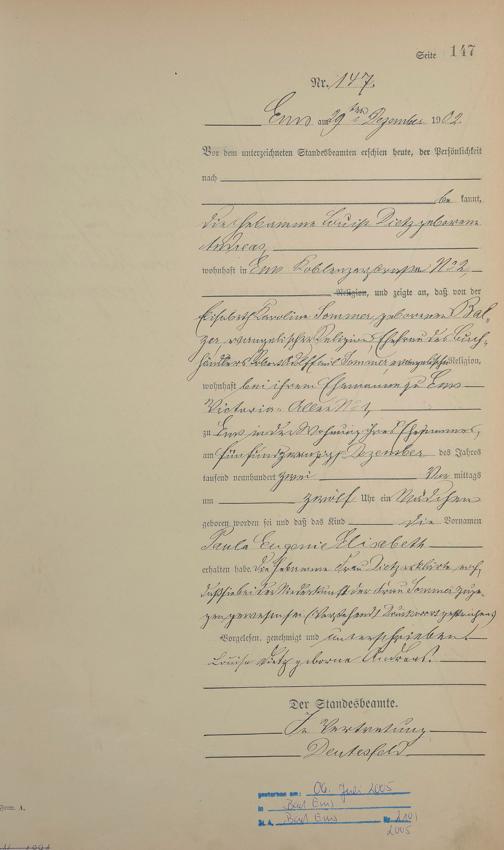 Seite 147
Nr. 147.
Ems am 29ten Dezember 1902.
Vor dem unterzeichneten Standesbeamten erschien heute, der Persönlichkeit
nach
be kannt,
die Hebamme Louise Dietz geborene
Andreas
wohnhaft in Ems Koblenzerstraße No 2,
Religion, und zeigte an, daß von der
Elisabeth Karoline Sommer geborenen Bal-
zer evangelischer Religion, Ehefrau des Buch-
händlers Sommer evangelischer Religion,
wohnhaft bei ihrem Ehemanne zu Ems
Victoria-Allee No 1,
zu Ems in der Wohnung ihres Ehemannes,
am fünfundzwanzigsten Dezember des Jahres
tausend neunhundert zwei Vor mittags
um zwölf Uhr ein Mädchen
geboren worden sei und daß das Kind die Vornamen
Paula Eugenie Elisabeth
erhalten habe. Die Hebamme Frau Dietz erklärte noch,
daß sie bei der Niederkunft der Frau Sommer zuge-
gen gewesen sei. (Vorstehend 1 Druckwort gestrichen)
Vorgelesen, genehmigt und unterschrieben
Louise Dietz geborne Andreas.
Der Standesbeamte.
In Vertretung
gestorben am: 06. Juli 2005
in Bad Ems
St. A. Bad Ems Nr. 210/
2005
Form. A.